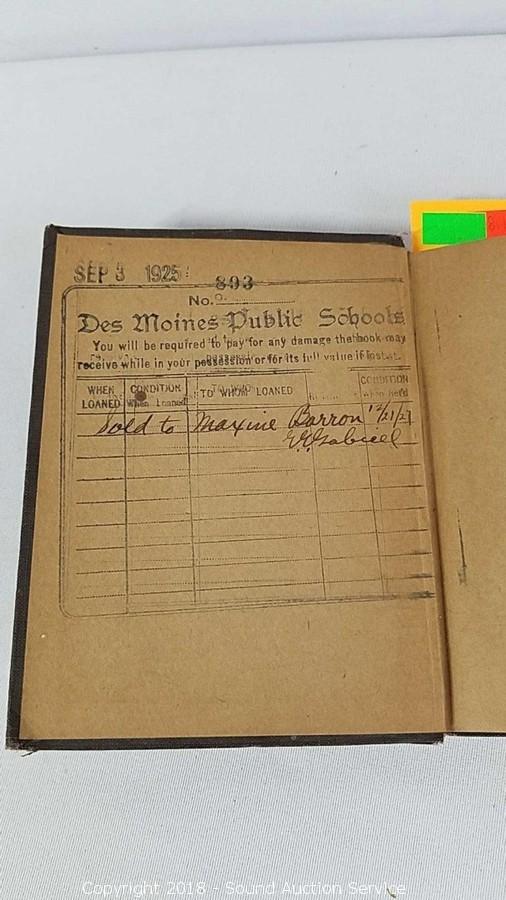 SEP 3 1925
893
No.
Des Moines Public Schools
You will be required to pay for any damage the book may
receive while in your possession or for its full value if lost.
WHEN LOANED CONDITION When Loaned TO WHOM LOANED CONDITION When Ret'd
Sold to Maxine Barron 12/21/27
E.E. Gabriel
Copyright 2018 - Sound Auction Service